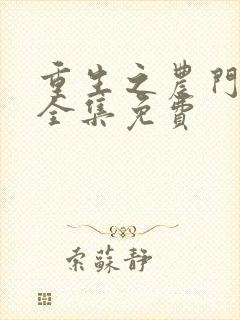 重生之農門
全集免費
索蘇靜